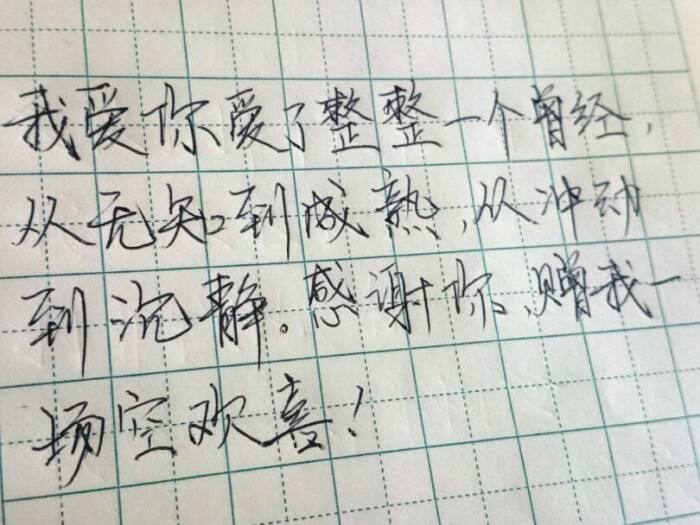 我爱你爱了整整一个曾经，
从无知到成熟，从冲动
到沉静。感谢你，赠我一
场空欢喜！